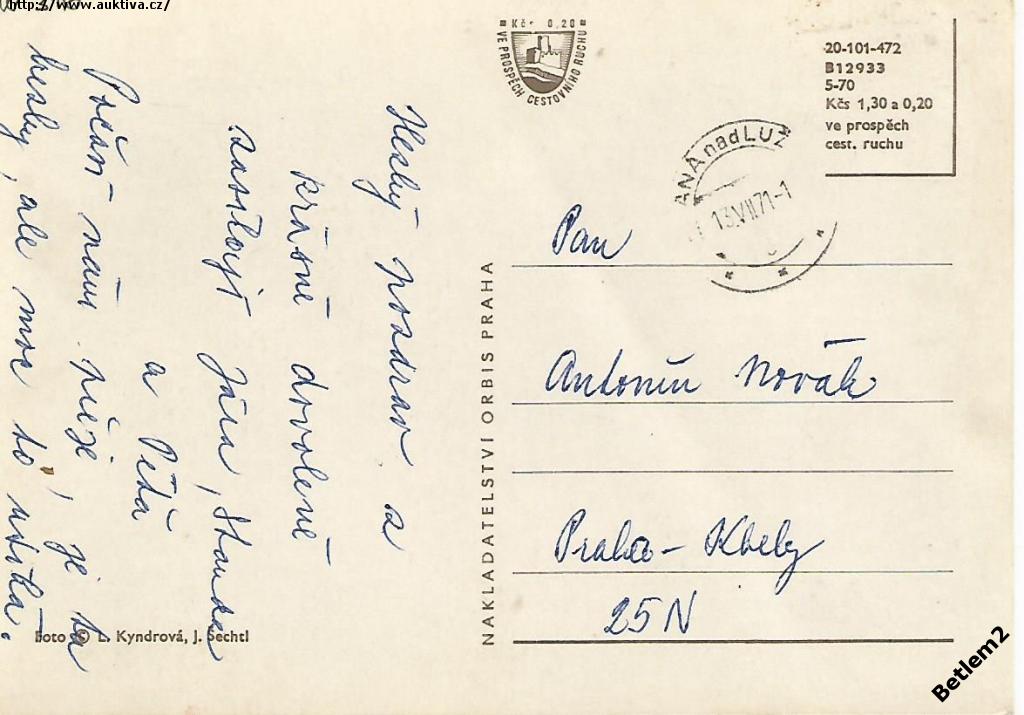 http://www.auktiva.cz/
Kčs 0,20
VE PROSPĚCH CESTOVNÍHO RUCHU
20-101-472
B12933
5-70
Kčs 1,30 a 0,20
ve prospěch
cest. ruchu
ANÁ nad LUŽ
13.VII.71-1
Hezký pozdrav z
krásné dovolené
zasílají Jára, Standa
a Péťa
Počasí nám přeje, je tu
hezky, ale moc to utíká.
NAKLADATELSTVÍ ORBIS PRAHA
Pan
Antonín Novák
Praha - Kbely
25N
Foto © L. Kyndrová, J. Šechtl
Betlem2